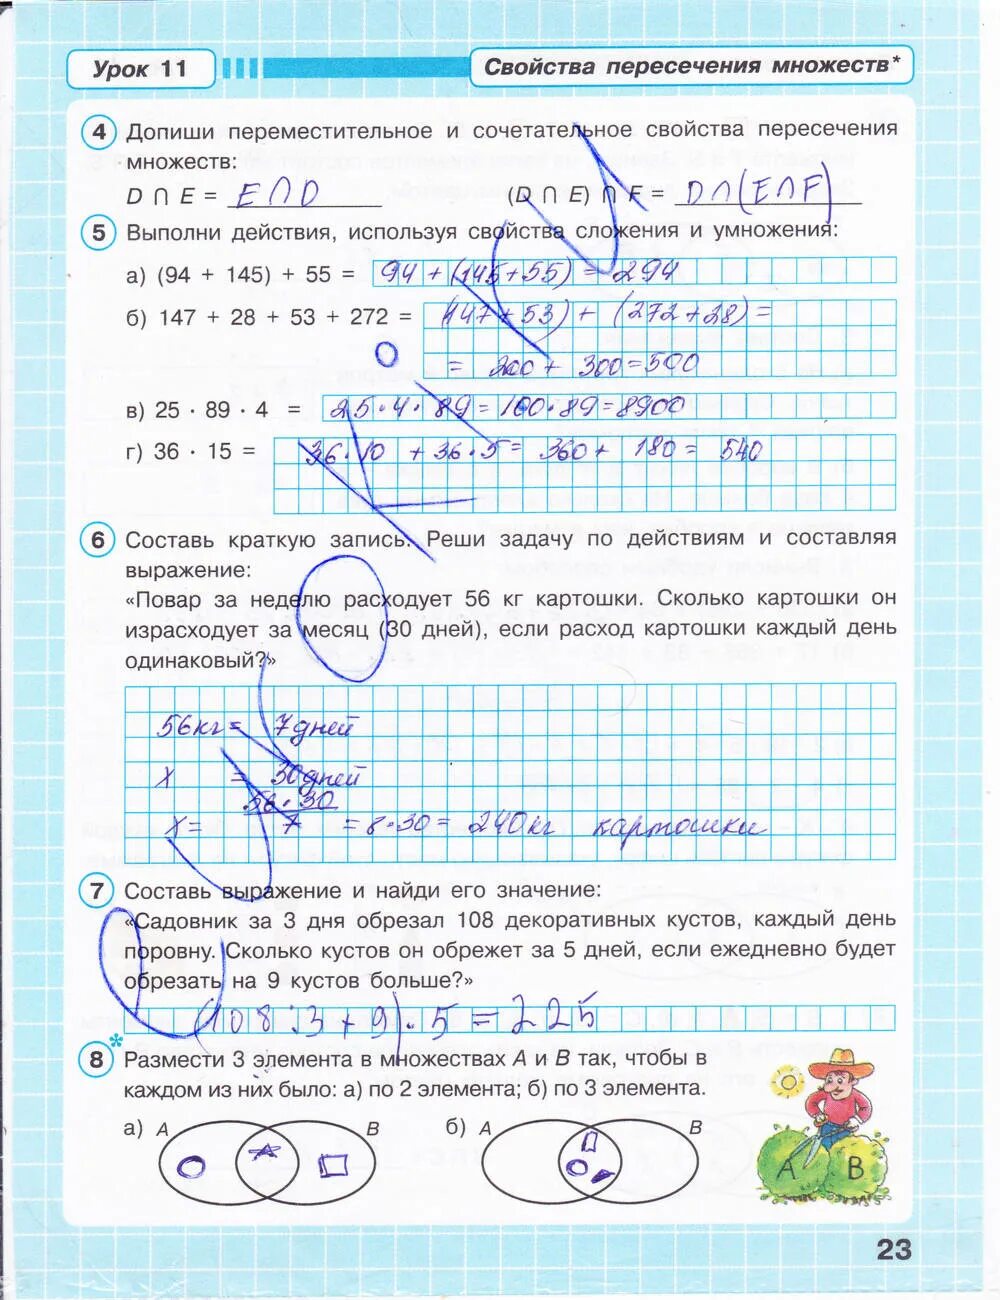 Урок 11
Свойства пересечения множеств*
4 Допиши переместительное и сочетательное свойства пересечения
множеств:
D ∩ E = E∩D (D ∩ E) ∩ F = D∩(E∩F)
5 Выполни действия, используя свойства сложения и умножения:
а) (94 + 145) + 55 = 94+(145+55) = 294
б) 147 + 28 + 53 + 272 = (147+53) + (272+28) =
= 200 + 300=500
в) 25 · 89 · 4 = 25·4·89=100·89=8900
г) 36 · 15 = 36·10 + 36·5= 360+ 180= 540
6 Составь краткую запись. Реши задачу по действиям и составляя
выражение:
«Повар за неделю расходует 56 кг картошки. Сколько картошки он
израсходует за месяц (30 дней), если расход картошки каждый день
одинаковый?»
56кг = 7дней
х = 30дней
56·30
х= 7 =8·30= 240кг картошки
7 Составь выражение и найди его значение:
«Садовник за 3 дня обрезал 108 декоративных кустов, каждый день
поровну. Сколько кустов он обрежет за 5 дней, если ежедневно будет
обрезать на 9 кустов больше?»
(108:3+9)·5=225
8* Размести 3 элемента в множествах A и B так, чтобы в
каждом из них было: а) по 2 элемента; б) по 3 элемента.
а) A B б) A B
A B
23